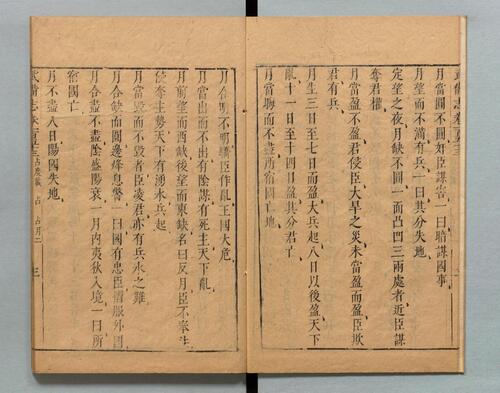 月當圓不圓奸臣謀害一曰暗謀國事
月望而不滿有兵一曰其分失地
定望之夜月缺不圓一面凸凹三兩處者近臣謀
奪君權
月當盈不盈君侵臣大旱之災未當盈而盈臣欺
君有兵
月生三日至七日而盈大兵起八日以後盈天下
亂十一日至十四日盈其分君亡
月當晦而不盡所宿國亡地
月合明不明將臣作亂王國大危
月當出而不出有陰謀有死主天下亂
月前望而西缺後望而東缺名曰反月臣不奉法
侵奪主勢天下有湧水兵起
月當毀而不毀者臣凌君亦有兵水之難
月合缺而圓邊烽息警一曰國有忠臣清服外國
月合盡不盡陰盛陽衰一月內夷狄入境一曰所
宿國亡
月不盡八日陽國失地
武備志卷 占度載 占 占月二 三